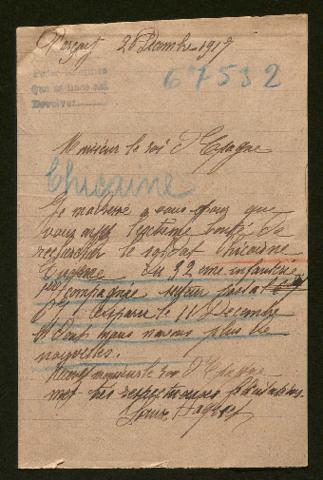 26 Decembre 1917
67532
Devolver
Monsieur le roi d'Espagne
Chicaine
Je m'adresse a vous pour que
vous ayez l'extrème bonté de
rechercher le soldat Chicaine
Eugène du 92 eme infanterie
compagnie secteur postal
disparu le 11 Decembre
dont nous navons plus de
nouvelles.
monsieur le roi d'Espagne
mes tres respectueuses salutations.